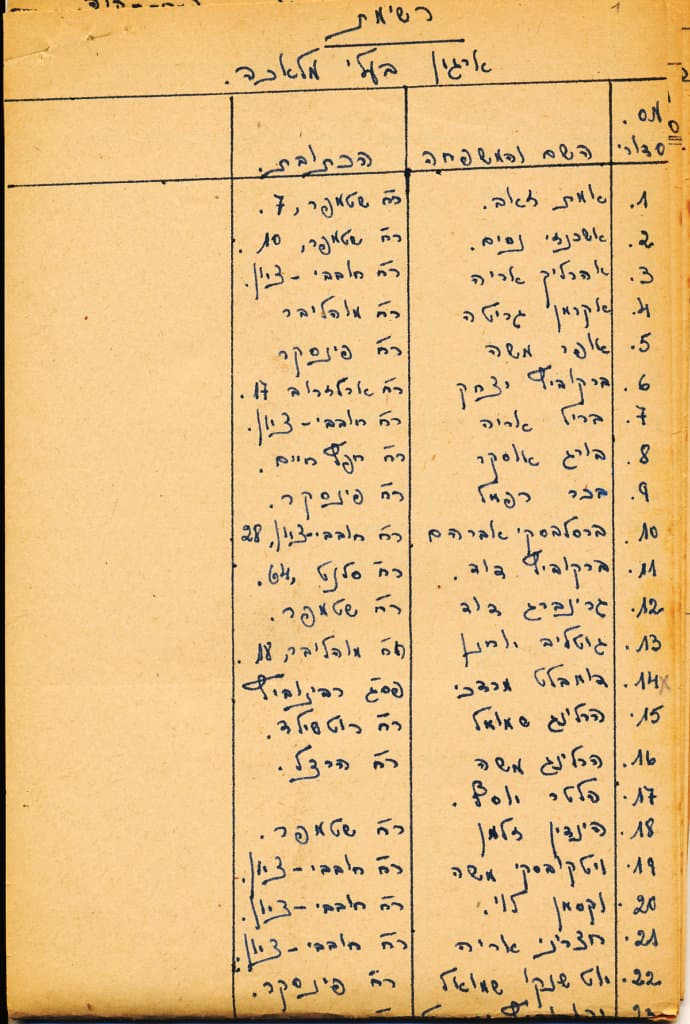 רשימת
ארגון בעלי מלאכה.
מס. סדורי השם והמשפחה הכתובת.
1. אמת זאב. רח' שטמפר, 7.
2. אשכנזי נסים. רח' שטמפר, 10.
3. אהרליק אריה רח' חובבי-ציון.
4. אקרמן גריטה רח' מוהליבר
5. אופר משה רח' פינסקר
6. ברקוביץ יצחק רח' ארלוזרוב 17.
7. בריל אריה רח' חובבי-ציון.
8. בורג אוסקר רח' חפץ חיים.
9. בכר רפאל רח' פינסקר.
10. ברסלבסקי אברהם רח' חובבי-ציון, 28
11. ברקוביץ דוד. רח' סלנט, 64.
12. גרינברג דוד רח' שטמפר.
13. גוטליב רח' מוהליבר, 18.
14. דומבלט מרדכי פסג' רבינוביץ
15. הרלינג שמואל רח' רוטשילד.
16. הרלינג משה רח' הרצל.
17. הלטר יוסף.
18. הינדין זלמן רח' שטמפר.
19. ויטקובסקי משה רח' חובבי-ציון.
20. וקסמן לוי. רח' חובבי-ציון.
21. חצרוני אריה רח' חובבי-ציון.
22. שמואל רח' פינסקר.